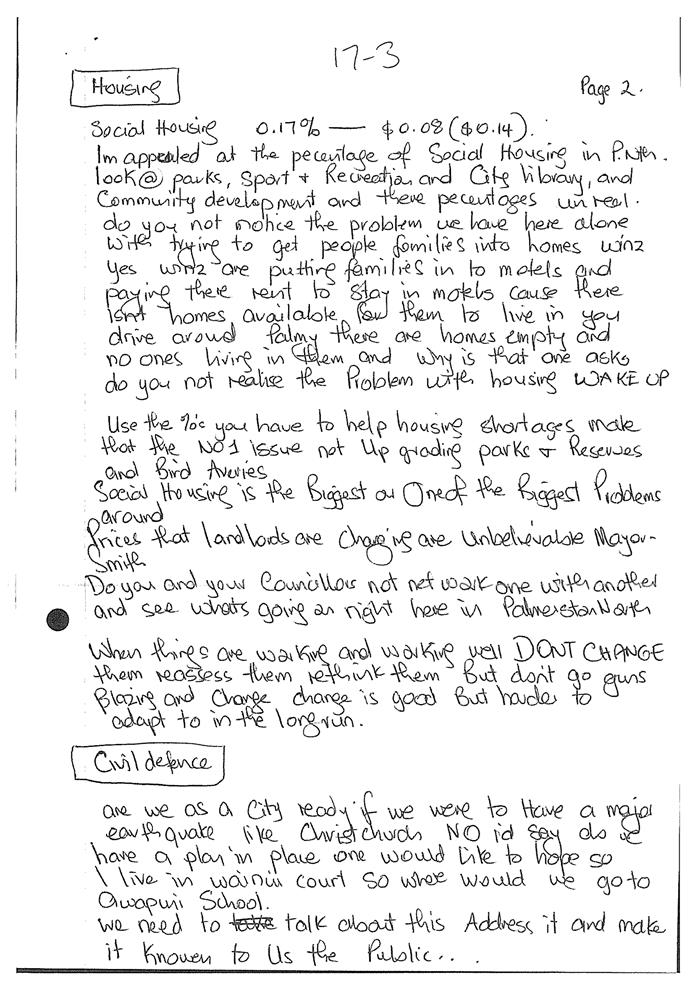 17-3
Housing
Page 2.
Social Housing 0.17% — $0.08 ($0.14).
Im appealed at the pecentage of Social Housing in P.Nth.
look@ parks, Sport + Recreation and City library, and
Community development and there pecentages unreal.
do you not notice the problem we have here alone
with trying to get people families into homes winz
Yes winz are putting families in to motels and
paying there rent to stay in motels cause there
isnt homes available for them to live in you
drive around Palmy there are homes empty and
no ones living in them and why is that one asks
do you not realise the Problem with housing WAKE UP
Use the %'s you have to help housing shortages make
that the NO1 issue not Up grading parks + Reserves
and Bird Averies
Social Housing is the Biggest or One of the Biggest Problems
around
Prices that landlords are charging are Unbelievable Mayor-
Smith
Do you and your Councillors not net work one with another
and see whats going on right here in Palmerston North
When things are working and working well DONT CHANGE
them reassess them rethink them But don't go guns
Blazing and Change change is good But harder to
adapt to in the long run.
Civil defence
are we as a City ready if we were to Have a major
earthquake like Christchurch NO id say do we
have a plan in place one would like to hope so
I live in court so where would we go to
Awapuni School.
we need to talk about this Address it and make
it Known to Us the Public...